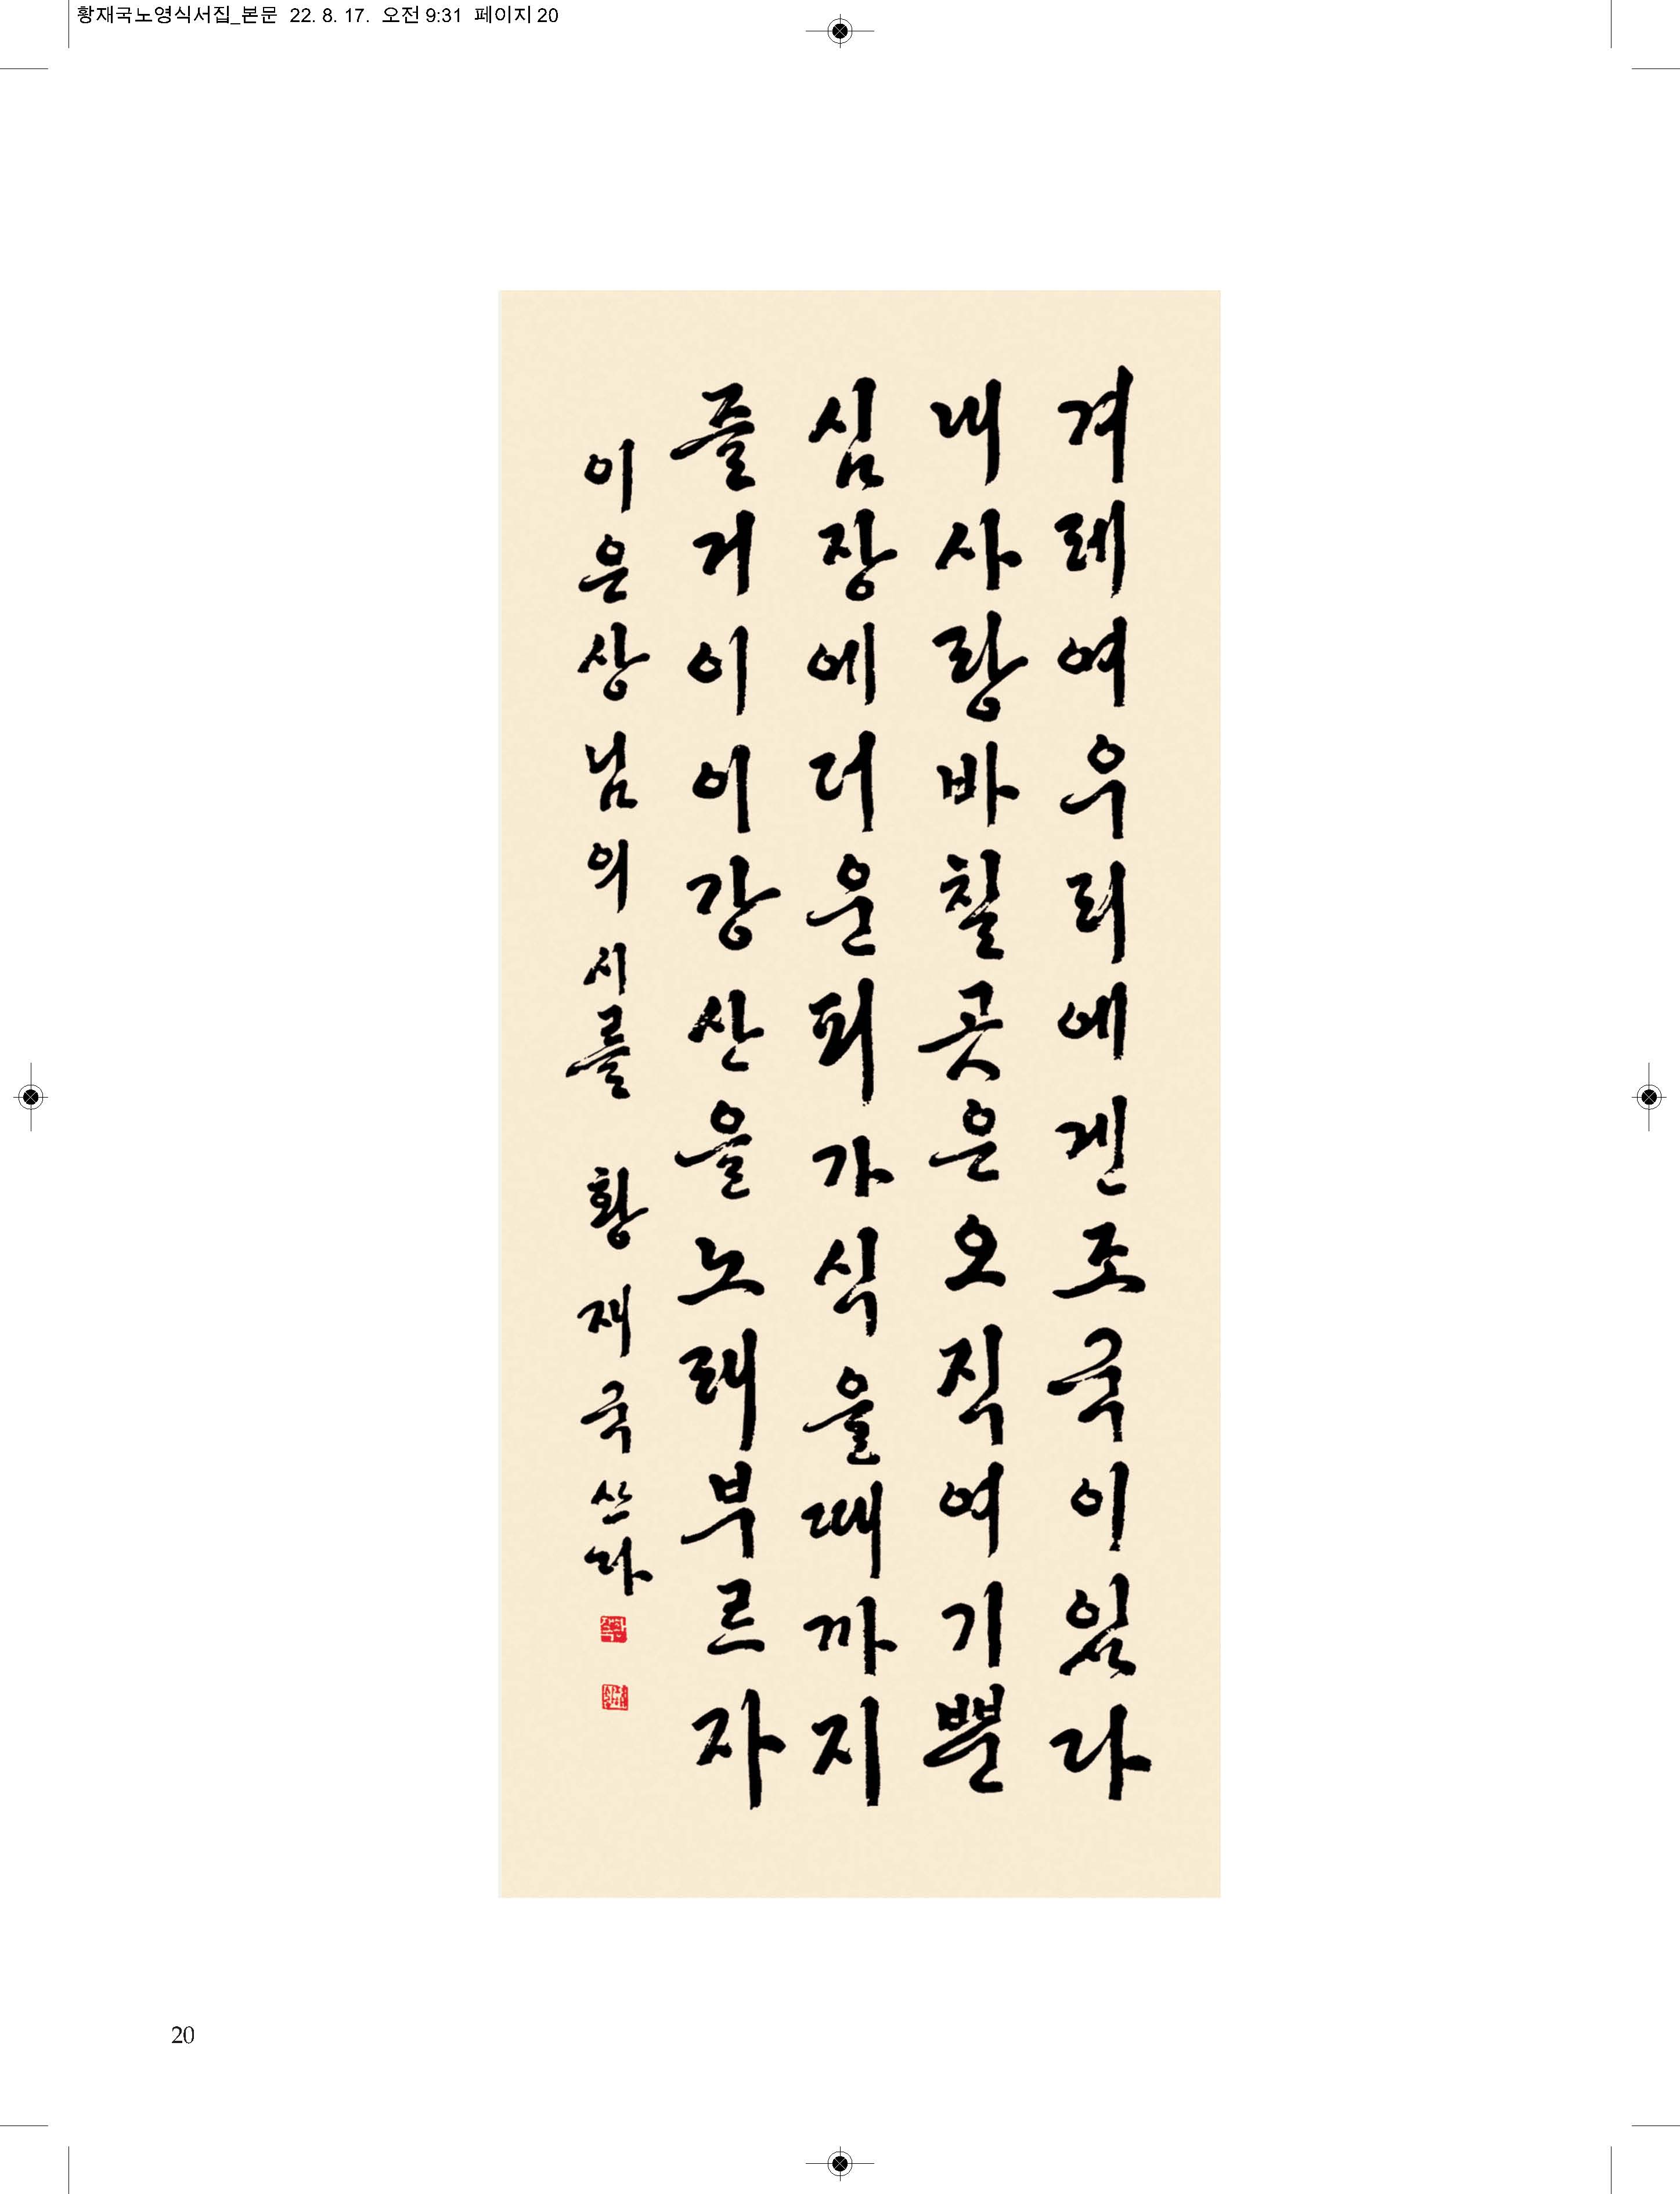 황재국노영식서집_본문 22. 8. 17. 오전 9:31 페이지 20
겨레여우리에겐조국이있다
내사랑바칠곳은오직여기뿐
심장에더운피가식을때까지
즐거이이강산을노래부르자
이은상님의시를 황재국쓰다
20